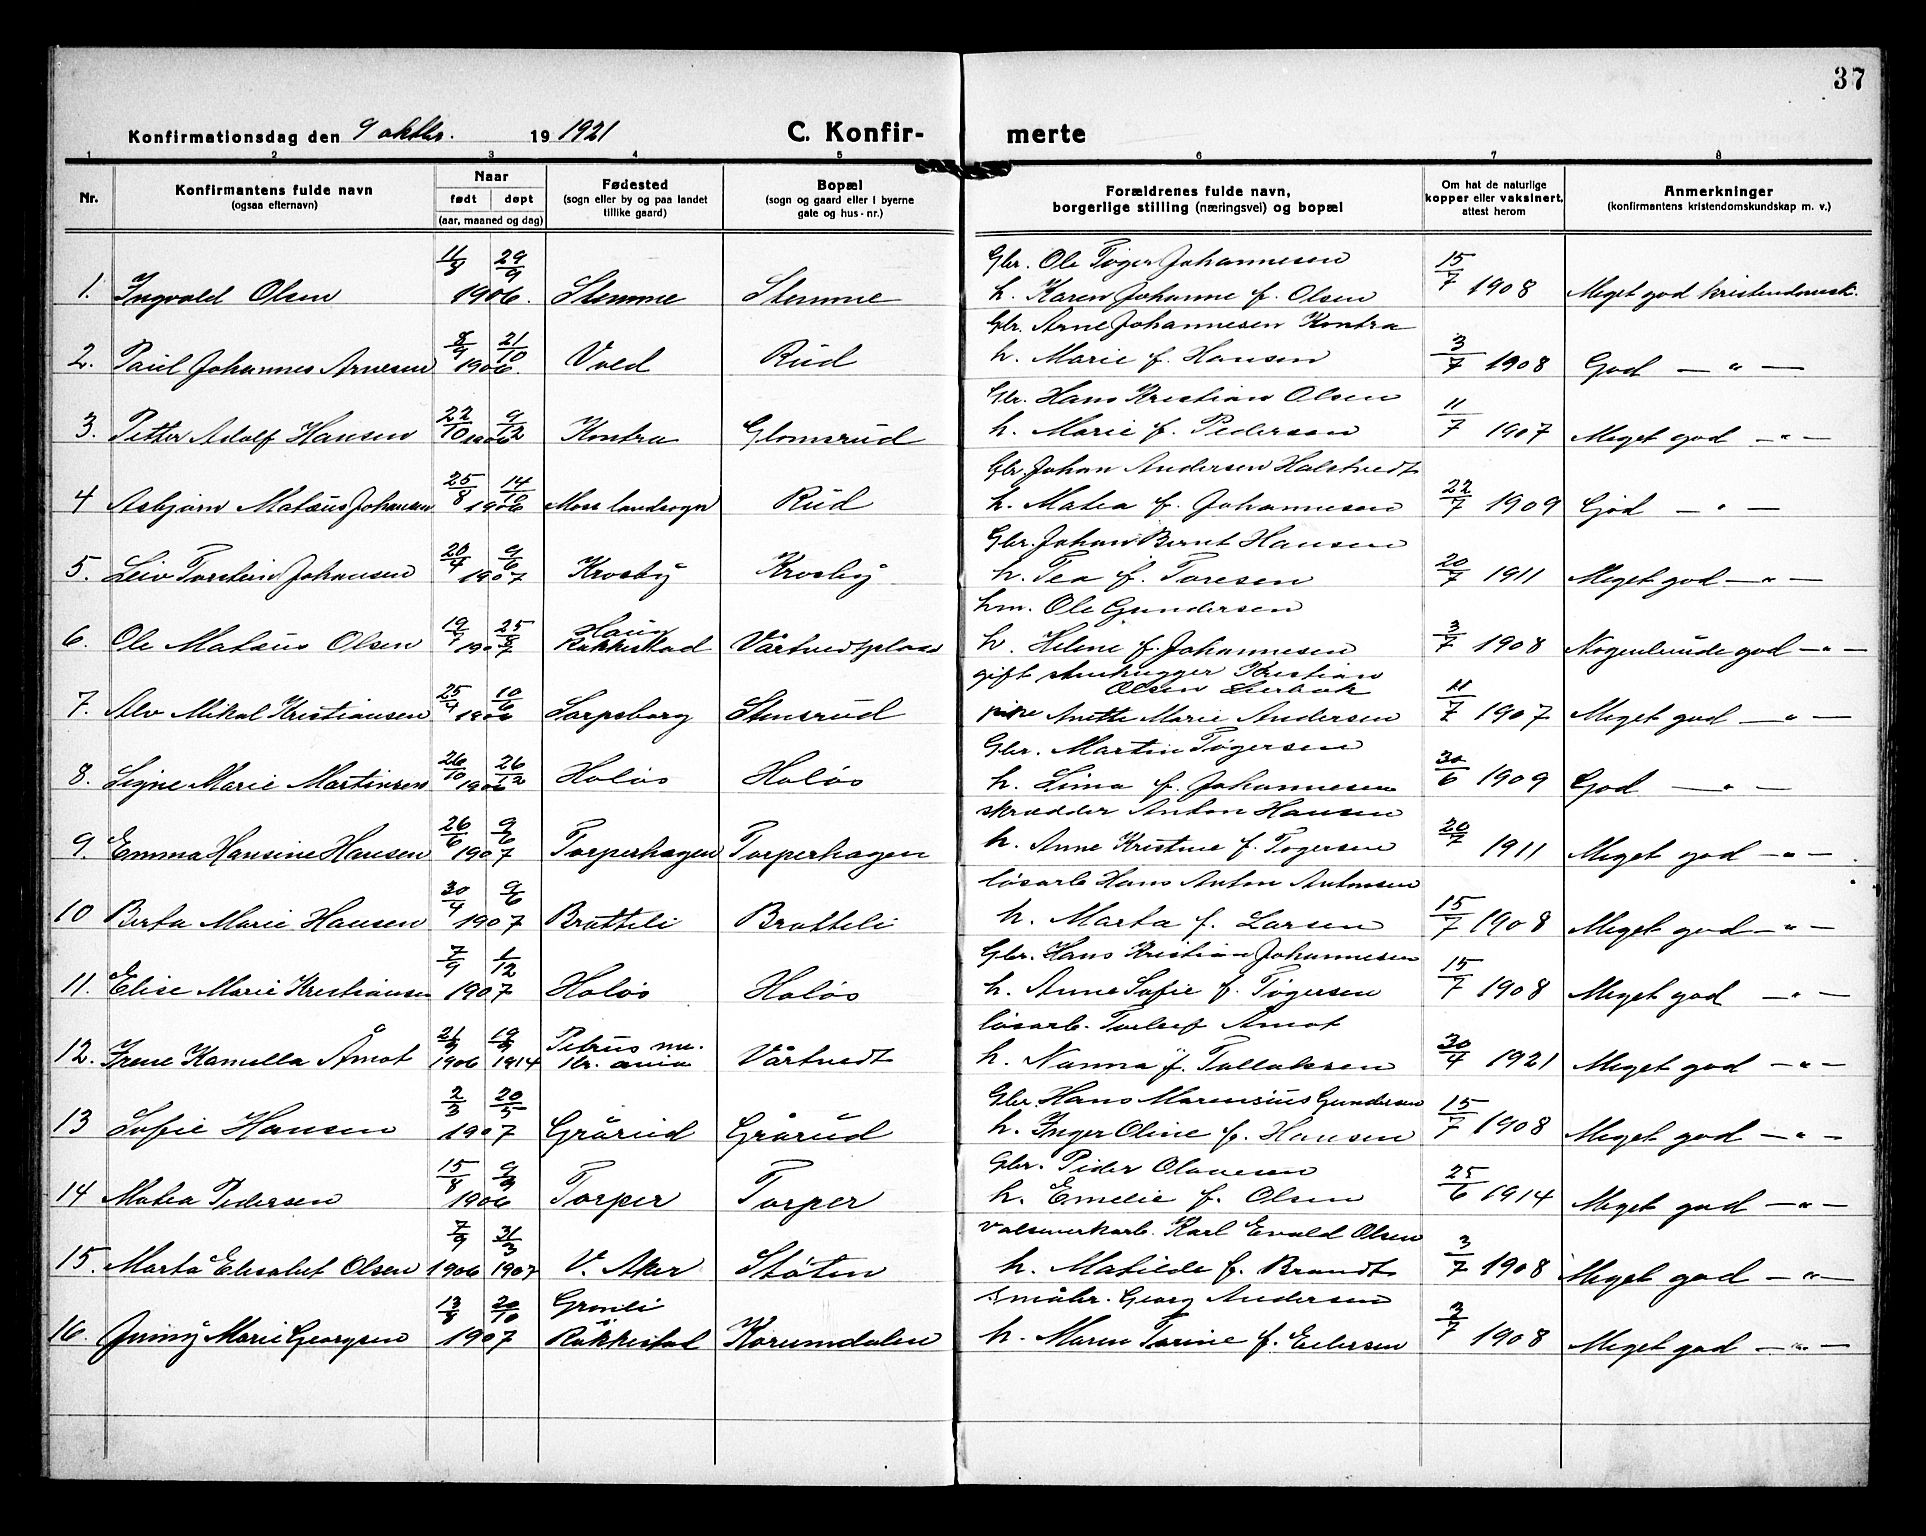 37
Konfirmationsdag den 9 oktbr. 19 1921
C. Konfir-
merte
1 2 3 4 5 6 7 8
Nr.
Konfirmantens fulde navn
(ogsaa efternavn)
Naar
født døpt
(aar, maaned og dag)
Fødested
(sogn eller by og paa landet
tillike gaard)
Bopæl
(sogn og gaard eller i byerne
gate og hus-nr.)
Forældrenes fulde navn,
borgerlige stilling (næringsvei) og bopæl
Om hat de naturlige
kopper eller vaksinert,
attest herom
Anmerkninger
(konfirmantens kristendomskundskap m. v.)
11/8 29/9 Gbr. Ole Tøger Johannesen
1. Ingvald Olsen 1906. Stemme Stemme h. Karen Johanne f. Olsen 15/7 1908 Meget god kristendomsk.
8/9 21/10 Gbr. Arne Johannesen Kontra
2. Paul Johannes Arnesen 1906. Vold Rud h. Marie f. Hansen 3/7 1908 God — " —
22/10 9/12 Gbr. Hans Kristian Olsen
3. Petter Adolf Hansen 1906 Kontra Glomsrud h. Marie f. Pedersen 11/7 1907 Meget god — " —
25/8 14/10 Gbr. Johan Andersen Halstvedt
4 Asbjørn Mataus Johansen 1906 Moss landsogn Rud h. Matea f. Johannesen 22/7 1909 God — " —
20/4 9/6 Gbr. Johan Bernt Hansen
5. Leiv Torstein Johansen 1907 Krosby Krosby h. Tea f. Toresen 20/7 1911 Meget god — " —
19/7 25/8 Haug hm. Ole Gundersen
6. Ole Mataus Olsen 1907 Rakkestad Vårtvedtplass h. Helene f. Johannesen 3/7 1908 Nogenlunde god — " —
gift stenhugger Kristian
25/4 10/6 Olsen Lierbak
7. Alv Mikal Kristiansen 1906 Sarpsborg Stensrud pike Anette Marie Andersen 11/7 1907 Meget god — " —
26/10 26/12 Gbr. Martin Tøgersen
8. Signe Marie Martinsen 1906 Holøs Holøs h. Lima f. Johannesen 30/6 1909 God — " —
26/6 9/6 skrædder Anton Hansen
9. Emma Hansine Hansen 1907 Torperhagen Torperhagen h. Anne Kristine f. Tøgersen 20/7 1911 Meget god — " —
30/4 9/6 løsarb Hans Anton Antonsen
10 Berta Marie Hansen 1907 Bratteli Bratteli h. Marta f. Larsen 15/7 1908 Meget god — " —
7/9 1/12 Gbr. Hans Kristian Johannesen
11. Elise Marie Kristiansen 1907 Holøs Holøs h. Anne Sofie f. Tøgersen 15/7 1908 Meget god — " —
21/9 19/9 Petrus me. løsarb. Torleif Åmot
12. Irene Kamella Åmot 1906 1914 Vårtvedt h. Nanna f. Tallaksen 30/4 1921 Meget god — " —
2/3 20/5 Gbr. Hans Marensius Gundersen
13 Sofie Hansen 1907 Grårud Grårud h. Inger Oline f. Hansen 15/7 1908 Meget god — " —
15/8 9/9 Gbr. Peder Olavesen
14 Matea Pedersen 1906 Torper Torper h. Emelie f. Olsen 25/6 1914 Meget god — " —
7/9 31/3 Valseverkarb. Karl Evald Olsen
15. Marta Elisabet Olsen 1906 1907 V. Aker Støten h. Matilde f. Brandt 3/7 1908 Meget god — " —
13/8 20/10 Grønli Småbr. Georg Andersen
16. Jenny Marie Georgsen 1907 Rakkestad Korumdalen h. Maren Torine f. Eilersen 3/7 1908 Meget god — " —